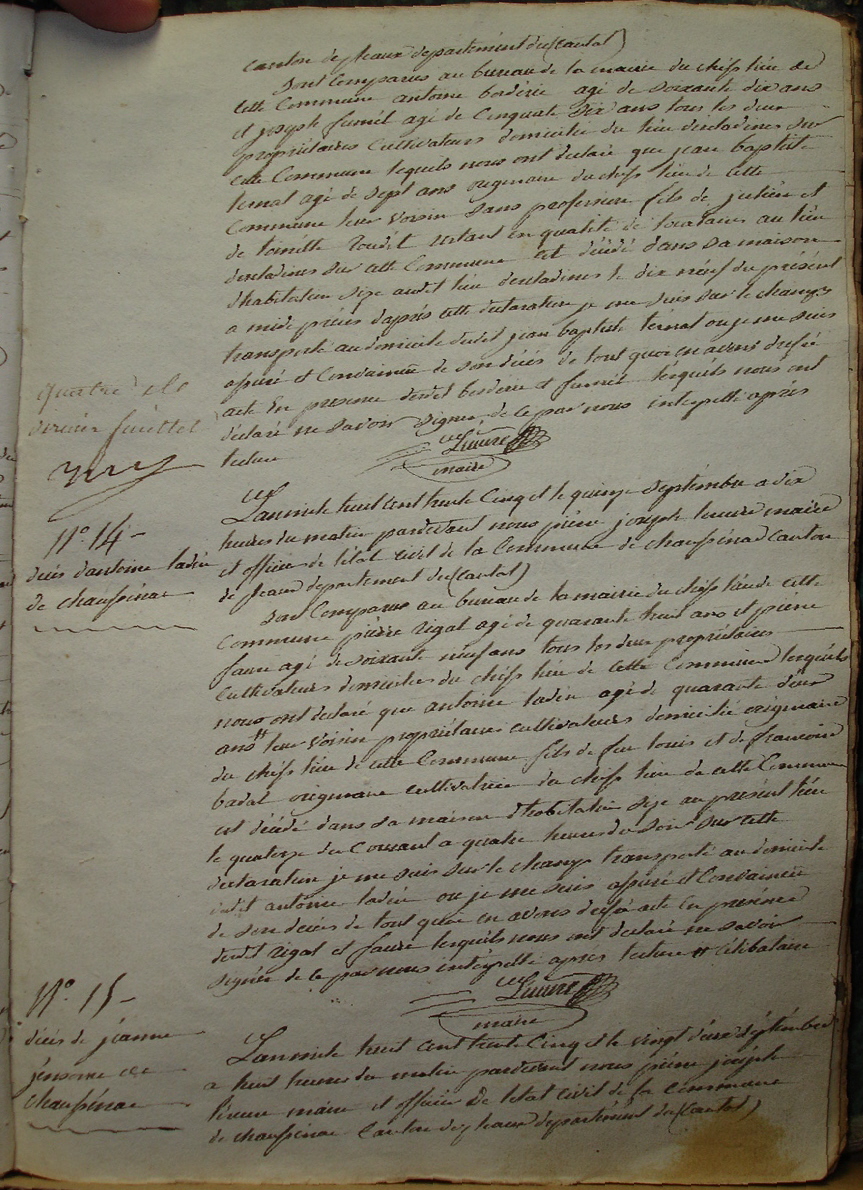 canton de pleaux departement du (Cantal)
Sont Comparus au bureau de la mairie du chefs lieu de
cette Commune antoine borderie agé de soixante dix ans
et joseph fumel agé de Cinquante dix ans tous les deux
propriétaires Cultivateurs domiciliés du lieu descladines sur
cette Commune lequels nous ont declaré que jean baptiste
ternat agé de sept ans originaire du chefs lieu de cette
Commune leur voisin sans profession fils de julien et
de toinette restant en qualité de locataires au lieu
descladines sur cette Commune est décédé dans sa maison
d'habitation size audit lieu descladines le dix neuf du présent
a midi précis d'aprés cette declaration je me suis sur le champs
transporté au domicile dudit jean baptiste ternat ou je me suis
assuré et Convaincu de son décés de tout quoi en avons dressé
acte En presence desdit borderie et fumel lequels nous ont
declaré ne savoir signer de ce par nous interpellé aprés
lecture
maire
quatre
dernier feuillet
N.º 14
décés d'antoine ladin
de chaussenac
L'an mile huit cent trente Cinq et le quinze septembre a dix
heures du matin pardevant nous piérre joseph maire
et officier de l'etat civil de la Commune de chaussenac Canton
de pleaux departement du (Cantal)
Sont Comparus au bureau de la mairie du chefs lieu de cette
Commune piérre rigal agé de quarante huit ans et piérre
faure agé de soixante neuf ans tous les deux propriétaires
Cultivateurs domiciliés du chefs lieu de cette Commune lesquels
nous ont declaré que antoine ladin agé de quarante deux
ans # leur voisin propriétaire cultivateurs domicilié originaire
du chefs lieu de cette Commune fils de feu louis et de francoise
badal originaire cultivatrice du chefs lieu de cette Commune
est décédé dans sa maison d'habitation size au présent lieu
le quatorze du Courant a quatre heures du soir sur cette
declaration je me suis sur le champs transporté au domicile
dudit antoine ladin ou je me suis assuré et Convaincu
de son décés de tout quoi en avons dressé acte En présence
desdit rigal et faure lesquels nous ont declaré ne savoir
signer de ce par nous interpellé apres lecture # célibataire
maire
N.º 15
décés de jeanne
de
chaussenac
L'an mile huit cent trente Cinq et le vingt deux septembre
a huit heures du matin pardevant nous piérre joseph
maire et officier de l'etat civil de la Commune
de chaussenac Canton de pleaux departement du (Cantal)